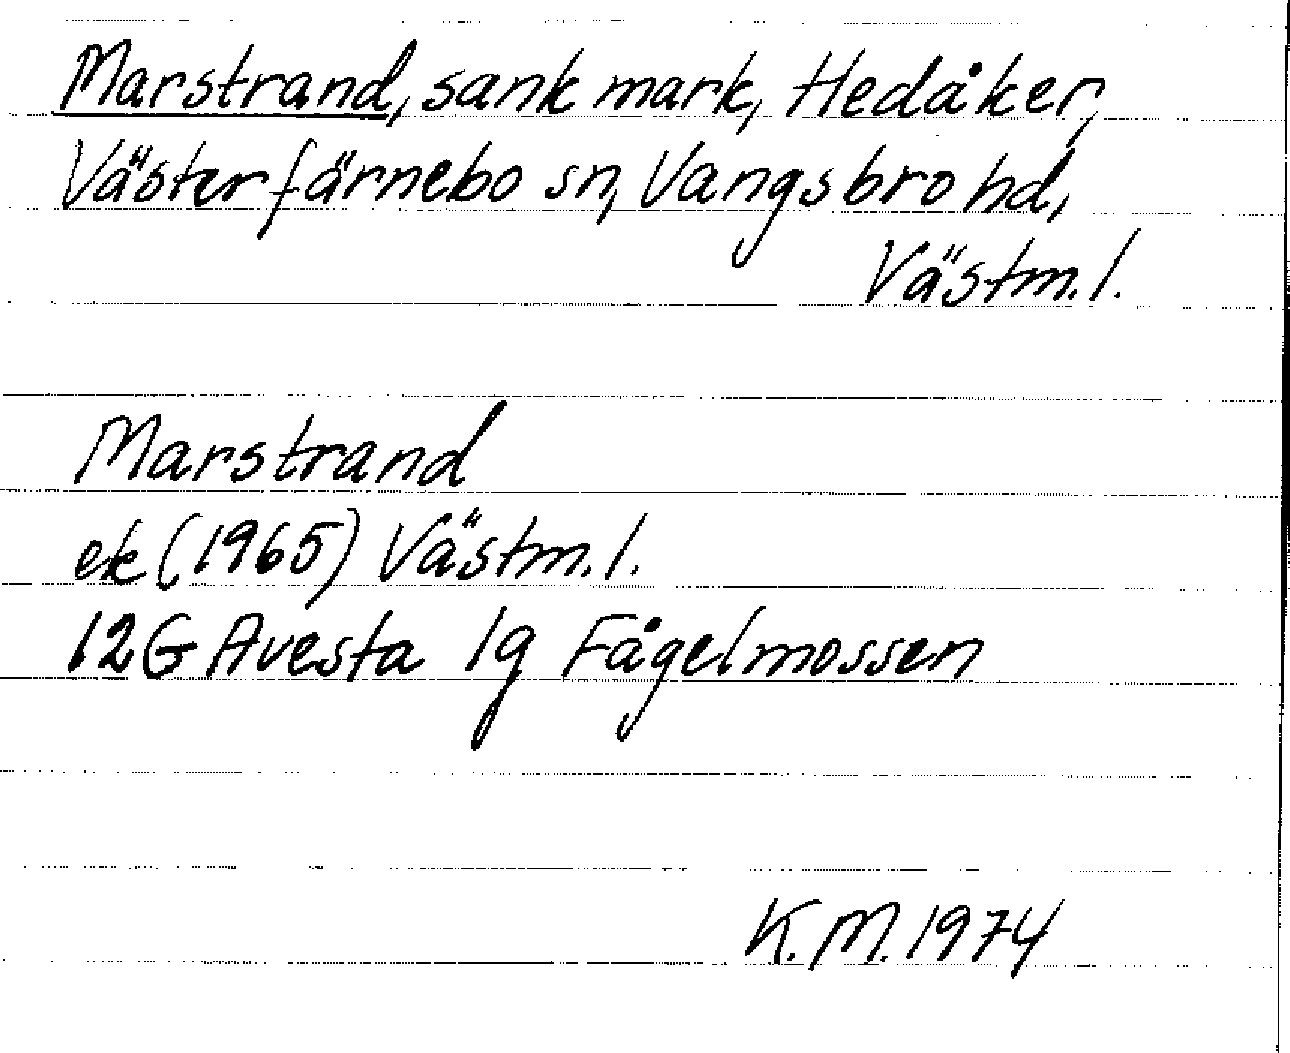 Marstrand, sank mark, Hedåker,
Västerfärnebo sn, Vangsbro hd,
Västm.l.
Marstrand
ek (1965) Västm.l.
12G Avesta 1g Fågelmossen
K.M. 1974